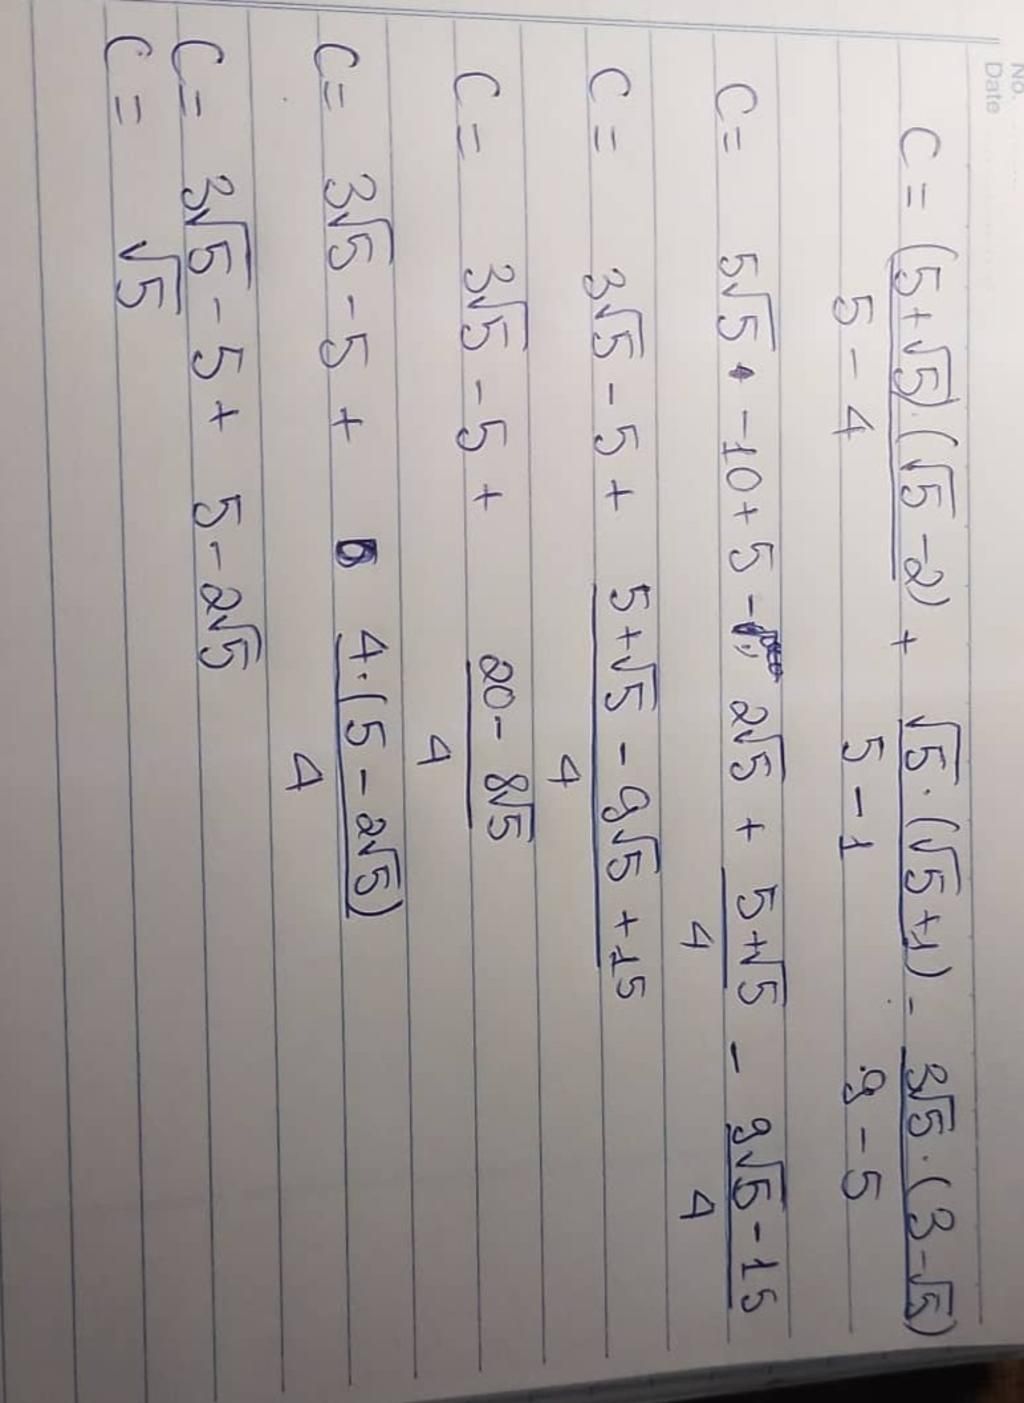 No.
Date
C = (5+√5).(√5 -2) + √5.(√5+1) - 3√5.(3-√5)
5 - 4 5 - 1 9 - 5
C = 5√5 -10 + 5 - 2√5 + 5+√5 - 9√5 - 15
4 4
C = 3√5 - 5 + 5+√5 - 9√5 + 15
4
C = 3√5 - 5 + 20 - 8√5
4
C = 3√5 - 5 + 4.(5 - 2√5)
4
C = 3√5 - 5 + 5 - 2√5
C = √5